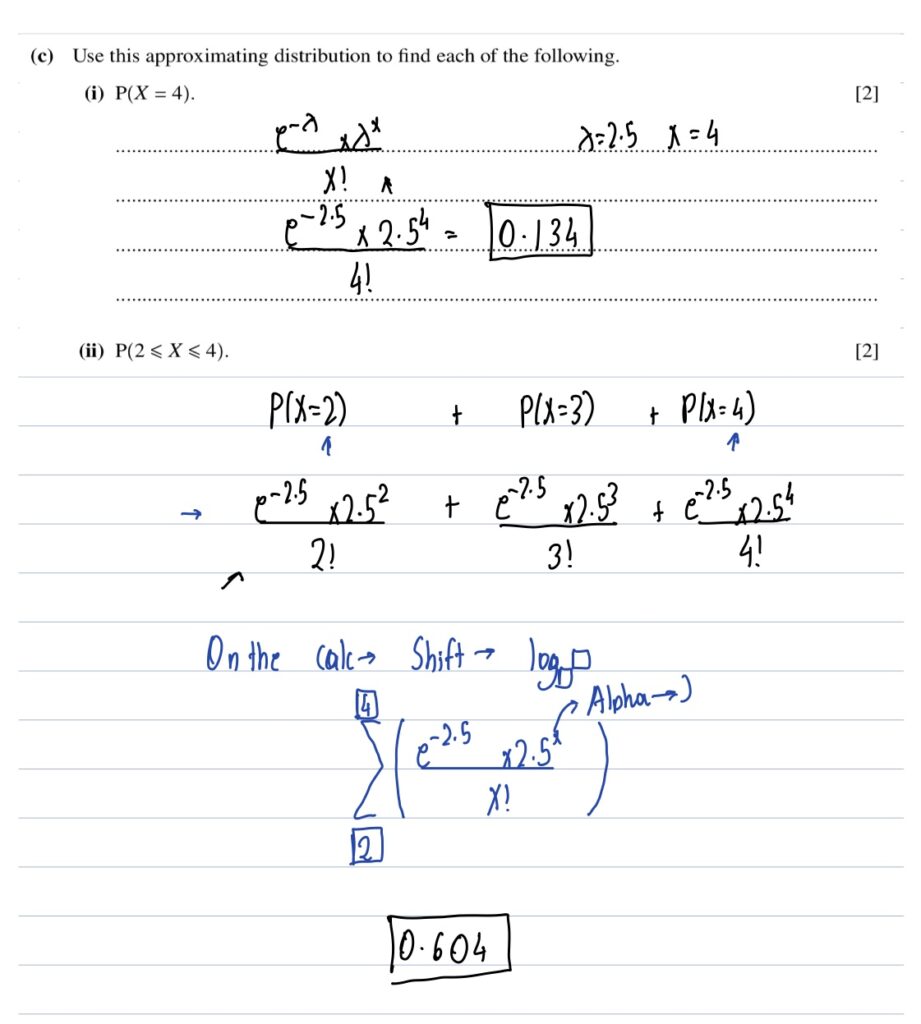 (c) Use this approximating distribution to find each of the following.
(i) P(X = 4). [2]
e^-λ × λ^x λ=2.5 x=4
x!
e^-2.5 × 2.5^4 = 0.134
4!
(ii) P(2 ⩽ X ⩽ 4). [2]
P(X=2) + P(X=3) + P(X=4)
→ e^-2.5 × 2.5^2 + e^-2.5 × 2.5^3 + e^-2.5 × 2.5^4
2! 3! 4!
On the calc → Shift → log□□
4 Alpha → )
Σ ( e^-2.5 × 2.5^x )
x!
2
0.604